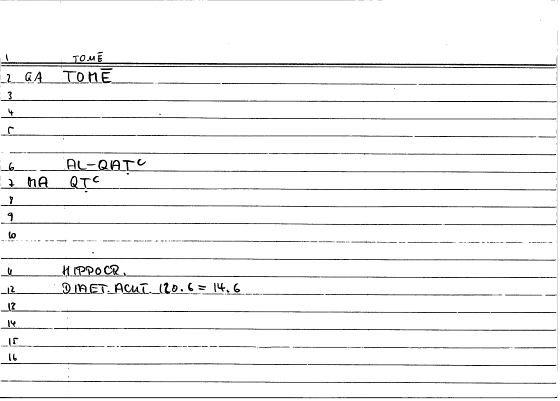 1 TOMĒ
2 GA TOMĒ
3
4
5
6 AL-QAṬᶜ
7 MA QṬᶜ
8
9
10
11 HIPPOCR.
12 DIAET. ACUT. 120.6 = 14.6
13
14
15
16